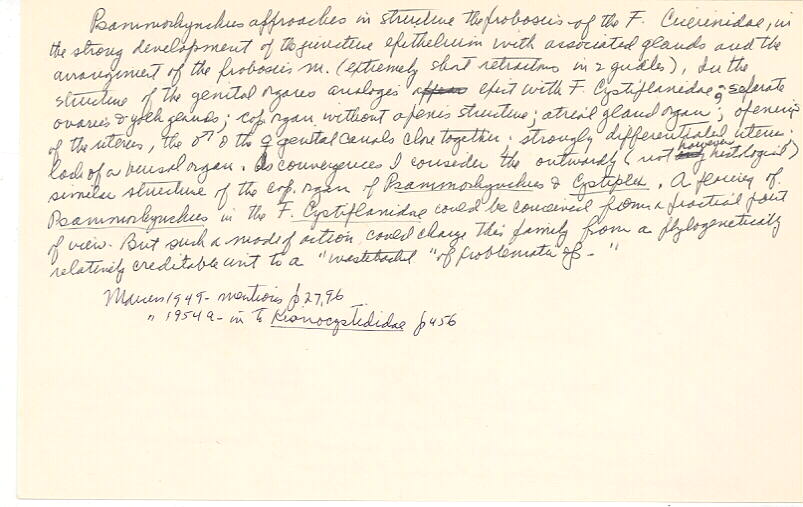 Psammorhynchus approaches in structure the proboscis of the F. Cicerinidae, in
the strong development of the junctive epithelium with associated glands and the
arrangement of the proboscis m. (extremely short retractors in 2 girdles), In the
structure of the genital organs analogis exist with F. Cystiflanidae, ♀ separate
ovaries & yolk glands; cop. organ without a penis structure; atrial gland organ; opening
of the uterus, the ♂ & the ♀ genital canals close together. strongly differentiated uterus.
lack of a bursal organ. As convergences I consider the outwardly (not however histological)
similar structure of the cop. organ of Psammorhynchus & Cystiplex. A placing of
Psammorhynchus in the F. Cystiflanidae could be conceived from a practical point
of view. But such a mode of action could change this family from a phylogenetically
relatively creditable unit to a "wastebasket" of problemata of - "
Marcus 1949 - mentions p 27, 96
" 1954a - in to Kronocystididae p 456